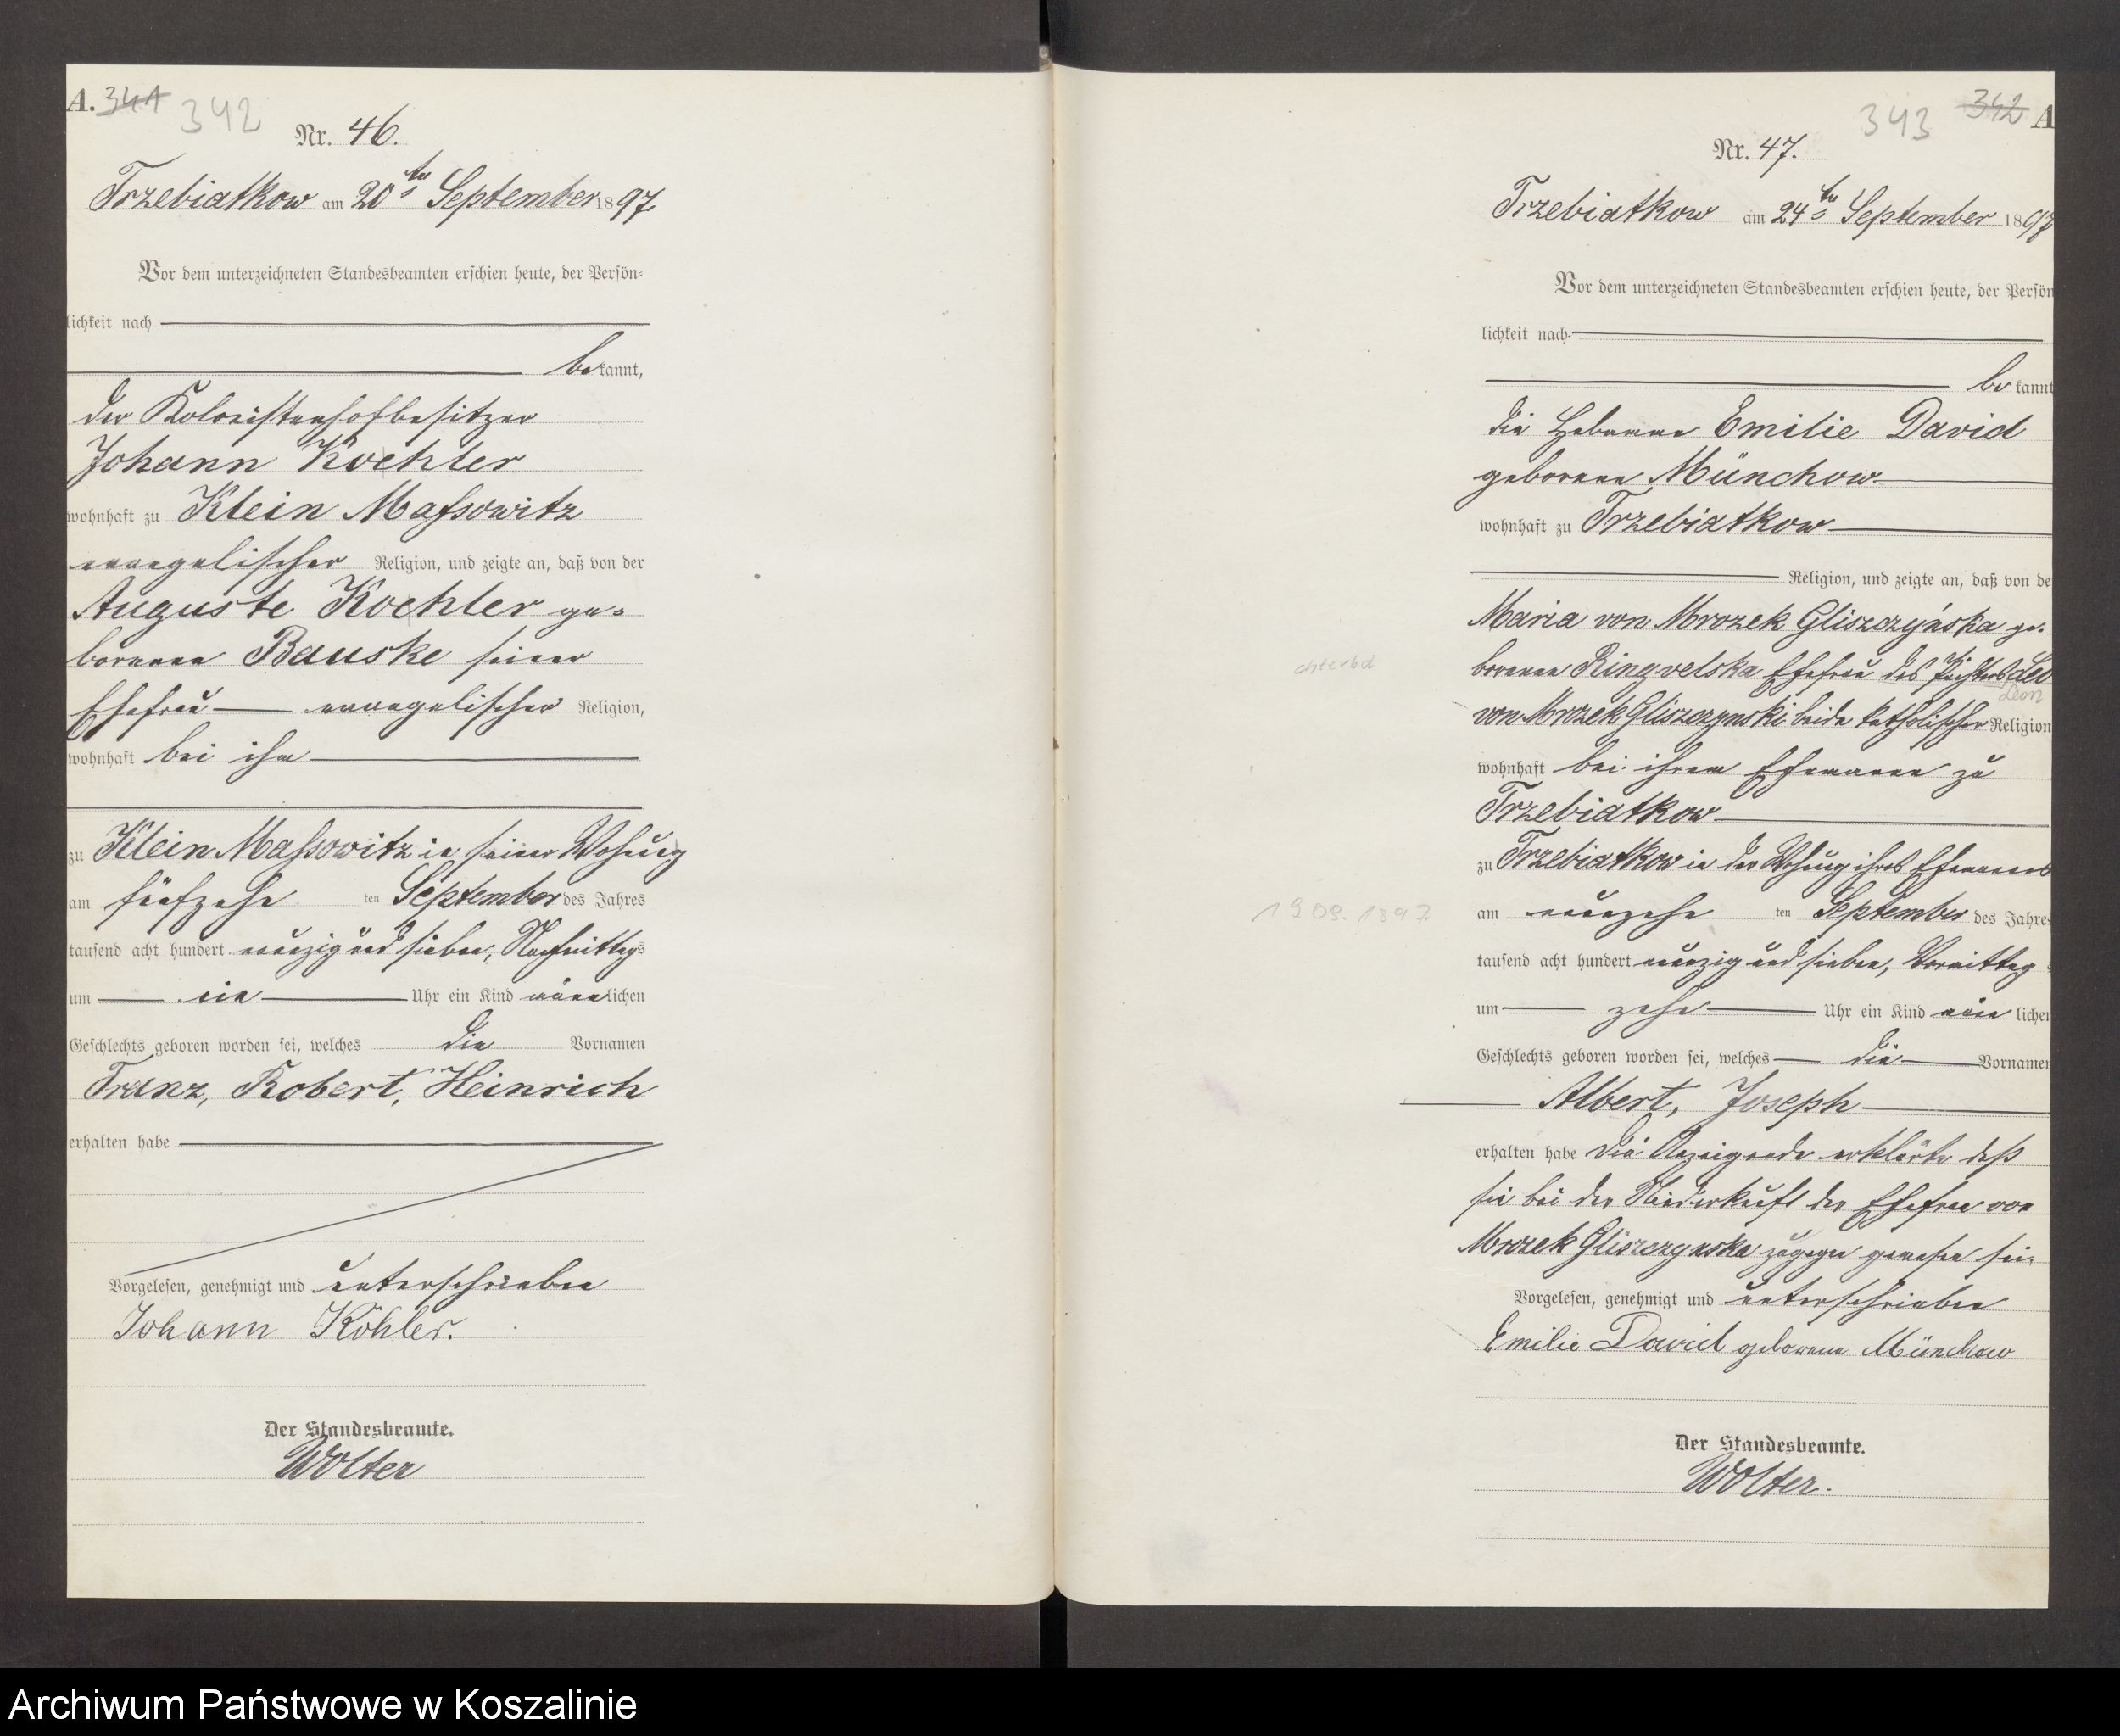 A. 341 342
Nr. 46.
Trzebiatkow am 20ten September 1897.
Vor dem unterzeichneten Standesbeamten erschien heute, der Persön-
lichkeit nach
bekannt,
der Kolonistenhofbesitzer
Johann Koehler
wohnhaft zu Klein Massowitz
evangelischer Religion, und zeigte an, daß von der
Auguste Koehler ge-
borenen Bauske seiner
Ehefrau evangelischer Religion,
wohnhaft bei ihm
zu Klein Massowitz in seiner Wohnung
am fünfzehn ten September des Jahres
tausend acht hundert neunzig und sieben, Nachmittags
um ein Uhr ein Kind männlichen
Geschlechts geboren worden sei, welches die Vornamen
Franz, Robert, Heinrich
erhalten habe
Vorgelesen, genehmigt und unterschrieben
Johann Köhler.
Der Standesbeamte.
Wolter
343 342 A
Nr. 47.
Trzebiatkow am 24ten September 1897
Vor dem unterzeichneten Standesbeamten erschien heute, der Persön
lichkeit nach
bekannt
die Hebamme Emilie David
geborene Münchow
wohnhaft zu Trzebiatkow
Religion, und zeigte an, daß von de
Maria von Mrozek Gliszczyńska ge-
borenen Ringwelska Ehefrau des Pächters Leo
Leon
von Mrozek Gliszczynski beide katholischer Religion
wohnhaft bei ihrem Ehemanne zu
Trzebiatkow
zu Trzebiatkow in der Wohnung ihres Ehemannes
19.09.1897
am neunzehn ten September des Jahres
tausend acht hundert neunzig und sieben, Vormittag
um zehn Uhr ein Kind männlichen
Geschlechts geboren worden sei, welches die Vornamen
Albert, Joseph
erhalten habe Die Anzeigende erklärte daß
sie bei der Niederkunft der Ehefrau von
Mrozek Gliszczynska zugegen gewesen sei.
Vorgelesen, genehmigt und unterschrieben
Emilie David geborene Münchow
Der Standesbeamte.
Wolter.
Archiwum Państwowe w Koszalinie